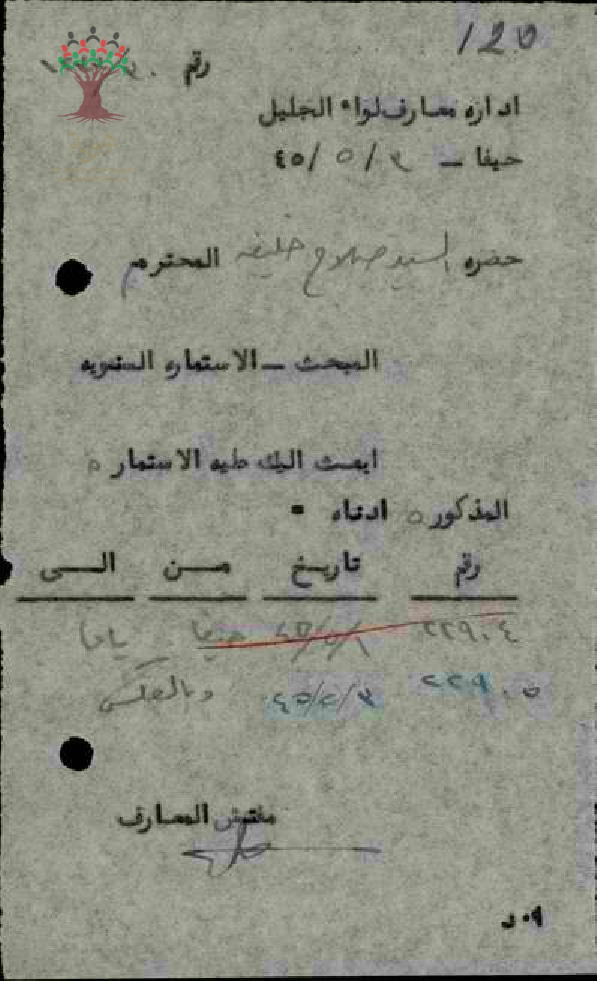 ١٢٥
رقم
اداره معارف لواء الجليل
حيفا – ٣ / ٥ / ٤٥
حضره السيد صلاح خليفه المحترم
المبحث – الاستماره السنويه
ابعث اليك طيه الاستماره
المذكوره ادناه ٠
رقم تاريخ من الى
٢٢٩٠٤ حيفا يافا
٢٢٩٠٥ ٤٥/٢/٣ وبالعكس
مفتش المعارف